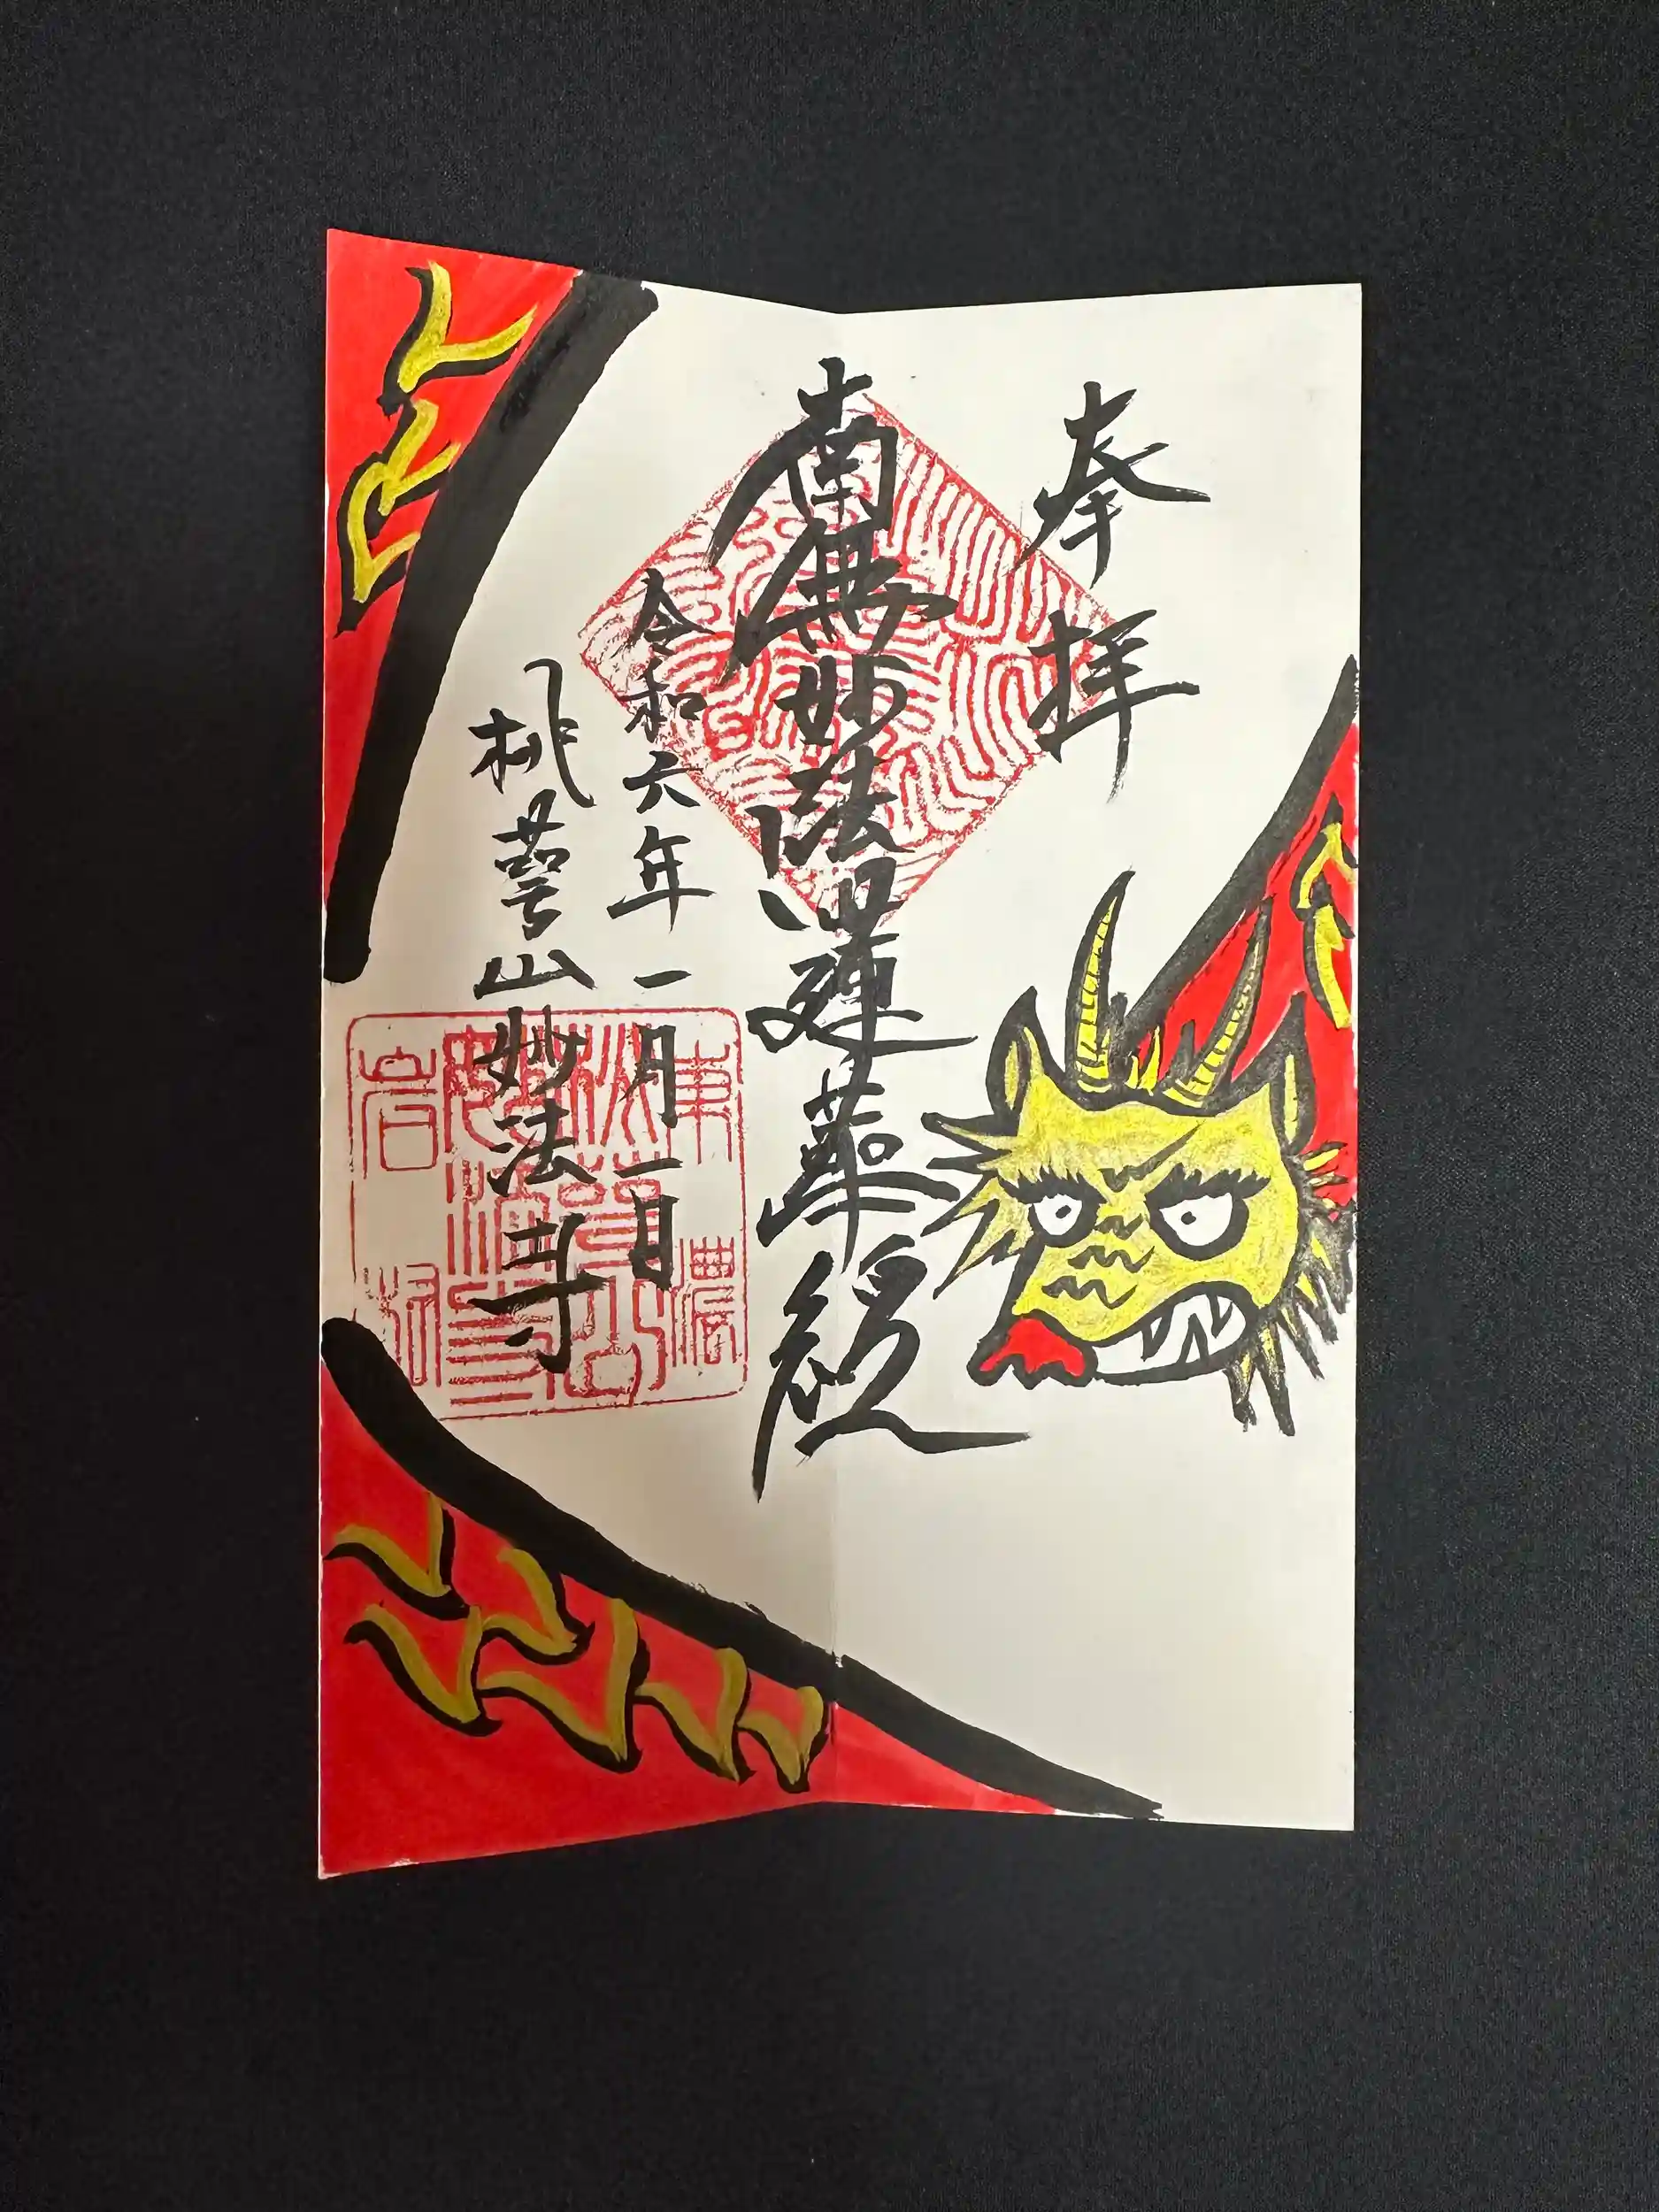 奉拝
南無妙法蓮華経
令和六年一月一日
桃萼山妙法寺
東濃
岩村